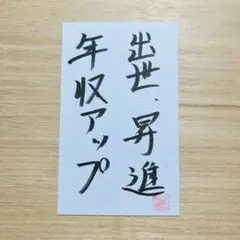 出世、昇進
年収アップ